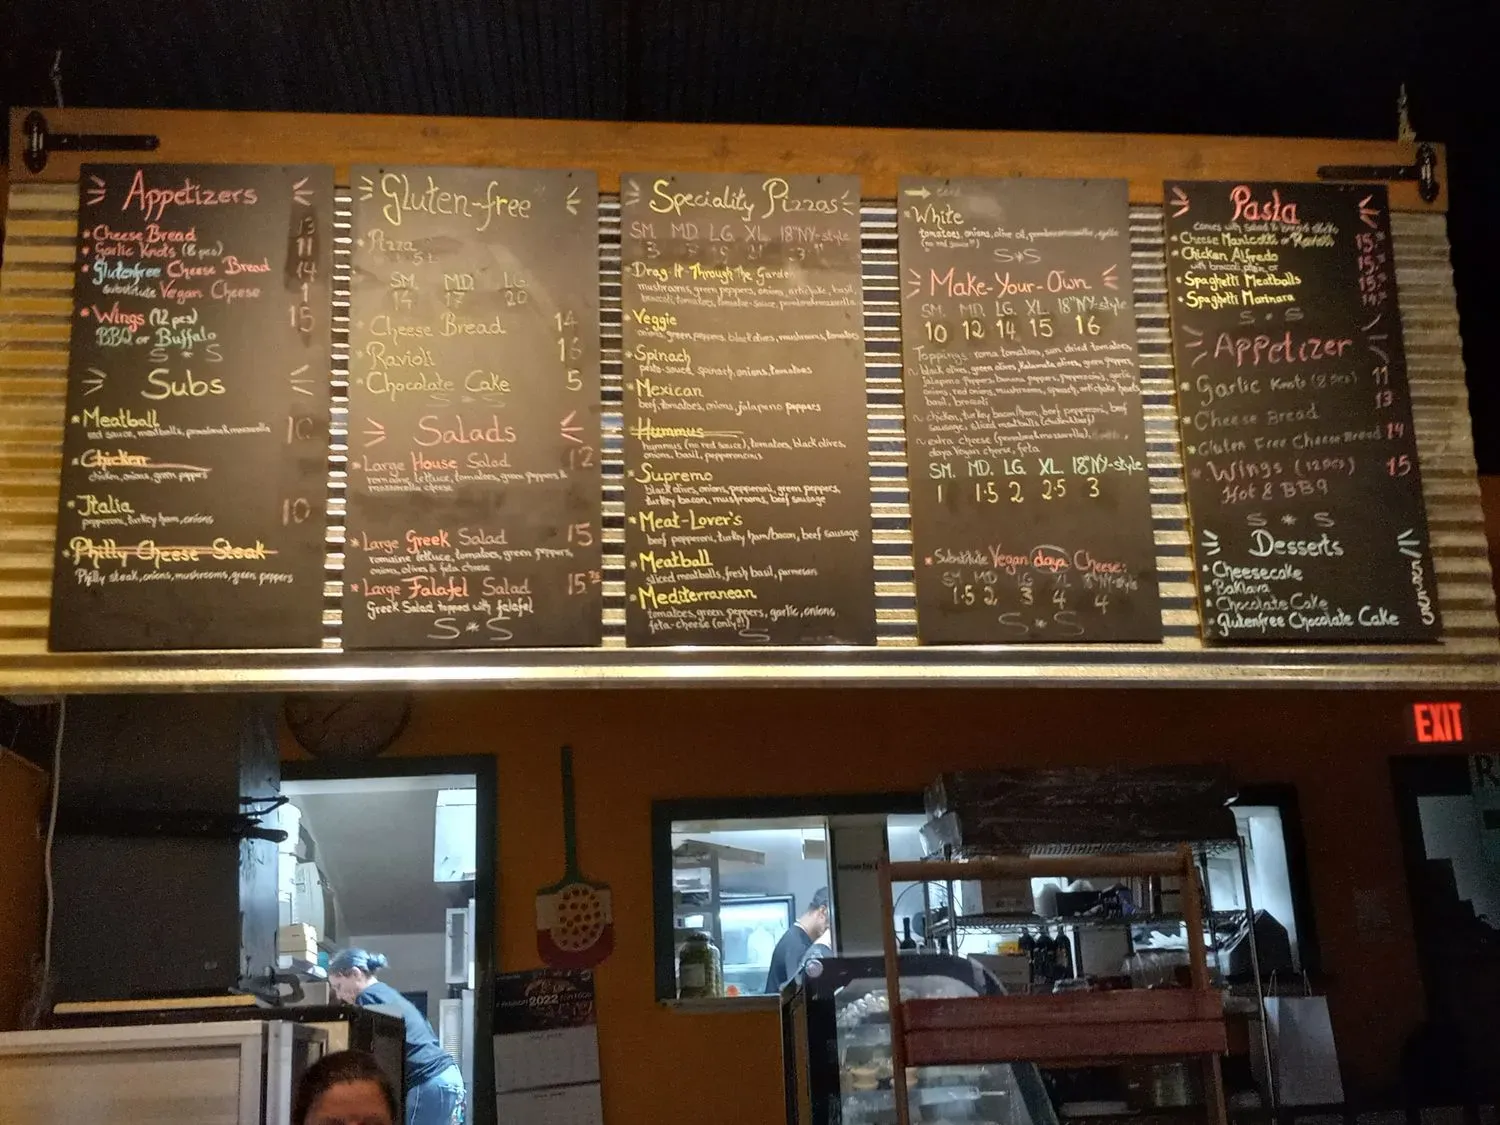 Appetizers
* Cheese Bread 13
* Garlic Knots (8 pcs) 11
* Glutenfree Cheese Bread 14
substitute Vegan Cheese 1
* Wings (12 pcs) 15
BBQ or Buffalo
S * S
Subs
* Meatball 10
red sauce, meatballs,
* Chicken
chicken, onions, green peppers
* Italia 10
pepperoni, turkey ham, onions
* Philly Cheese Steak
Philly steak, onions, mushrooms, green peppers
Gluten-free
* Pizza
SM. MD. LG
14 17 20
* Cheese Bread 14
* Ravioli 16
* Chocolate Cake 5
S * S
Salads
* Large House Salad 12
romaine, lettuce, tomatoes, green peppers &
mozzarella cheese
* Large Greek Salad 15
romaine lettuce, tomatoes, green peppers,
onions, olives & feta cheese
* Large Falafel Salad 15
Greek Salad topped with falafel
S * S
Speciality Pizzas
SM. MD. LG. XL. 18"NY-style
* Drag It Through The Garden
mushrooms, green peppers, onions, artichoke, basil
broccoli, tomatoes,
* Veggie
onions, green peppers, black olives, mushrooms, tomatoes
* Spinach
pesto-sauce, spinach, onions, tomatoes
* Mexican
beef, tomatoes, onions, jalapeno peppers
* Hummus
hummus (no red sauce), tomatoes, black olives,
onions, basil, pepperoncinis
* Supremo
black olives, onions, pepperoni, green peppers,
turkey bacon, mushrooms, beef sausage
* Meat-Lover's
beef pepperoni, turkey ham/bacon, beef sausage
* Meatball
sliced meatballs, fresh basil, parmesan
* Mediterranean
tomatoes, green peppers, garlic, onions,
feta-cheese (only!!)
S
* White
tomatoes, onions, olive oil, garlic
(no red sauce!!)
S * S
Make-Your-Own
SM. MD. LG. XL. 18"NY-style
10 12 14 15 16
Toppings: roma tomatoes, sun dried tomatoes,
~ black olives, green olives, Kalamata olives, green peppers,
jalapeno peppers, banana peppers, pepperoncini, garlic,
onions, red onions, mushrooms, spinach, artichoke hearts
basil, broccoli
~ chicken, turkey bacon/ham, beef pepperoni, beef
sausage, sliced meatballs
~ extra cheese
daya Vegan cheese, feta
SM. MD. LG. XL. 18"NY-style
1 1.5 2 2.5 3
* Substitute Vegan daya Cheese:
SM. MD LG XL 18"NY-style
1.5 2 3 4 4
S * S
Pasta
comes with salad & bread sticks
* Cheese Manicotti or Ravioli 15
* Chicken Alfredo 15
with broccoli, plain, or
* Spaghetti Meatballs 15
* Spaghetti Marinara 14
S * S
Appetizer
* Garlic Knots (8 pcs) 11
* Cheese Bread 13
* Gluten Free Cheese Bread 14
* Wings (12 pcs) 15
Hot & BBQ
S * S
Desserts
* Cheesecake
* Baklava
* Chocolate Cake
* Glutenfree Chocolate Cake
EXIT
2022
R